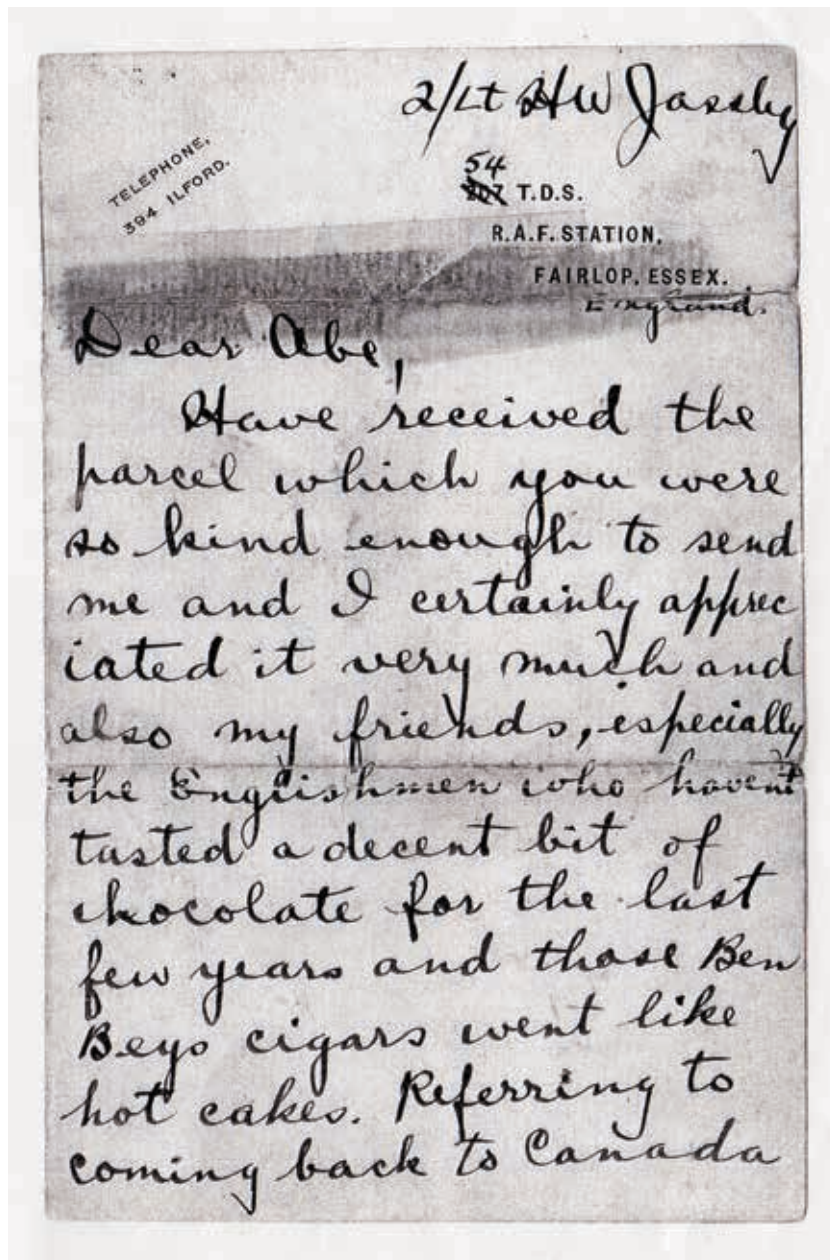 2/Lt HW Jassby
TELEPHONE,
394 ILFORD.
54
207 T.D.S.
R.A.F. STATION,
FAIRLOP, ESSEX.
England.
Dear Abe,
Have received the
parcel which you were
so kind enough to send
me and I certainly apprec
iated it very much and
also my friends, especially
the Englishmen who havent
tasted a decent bit of
chocolate for the last
few years and those Ben
Beys cigars went like
hot cakes. Referring to
coming back to Canada